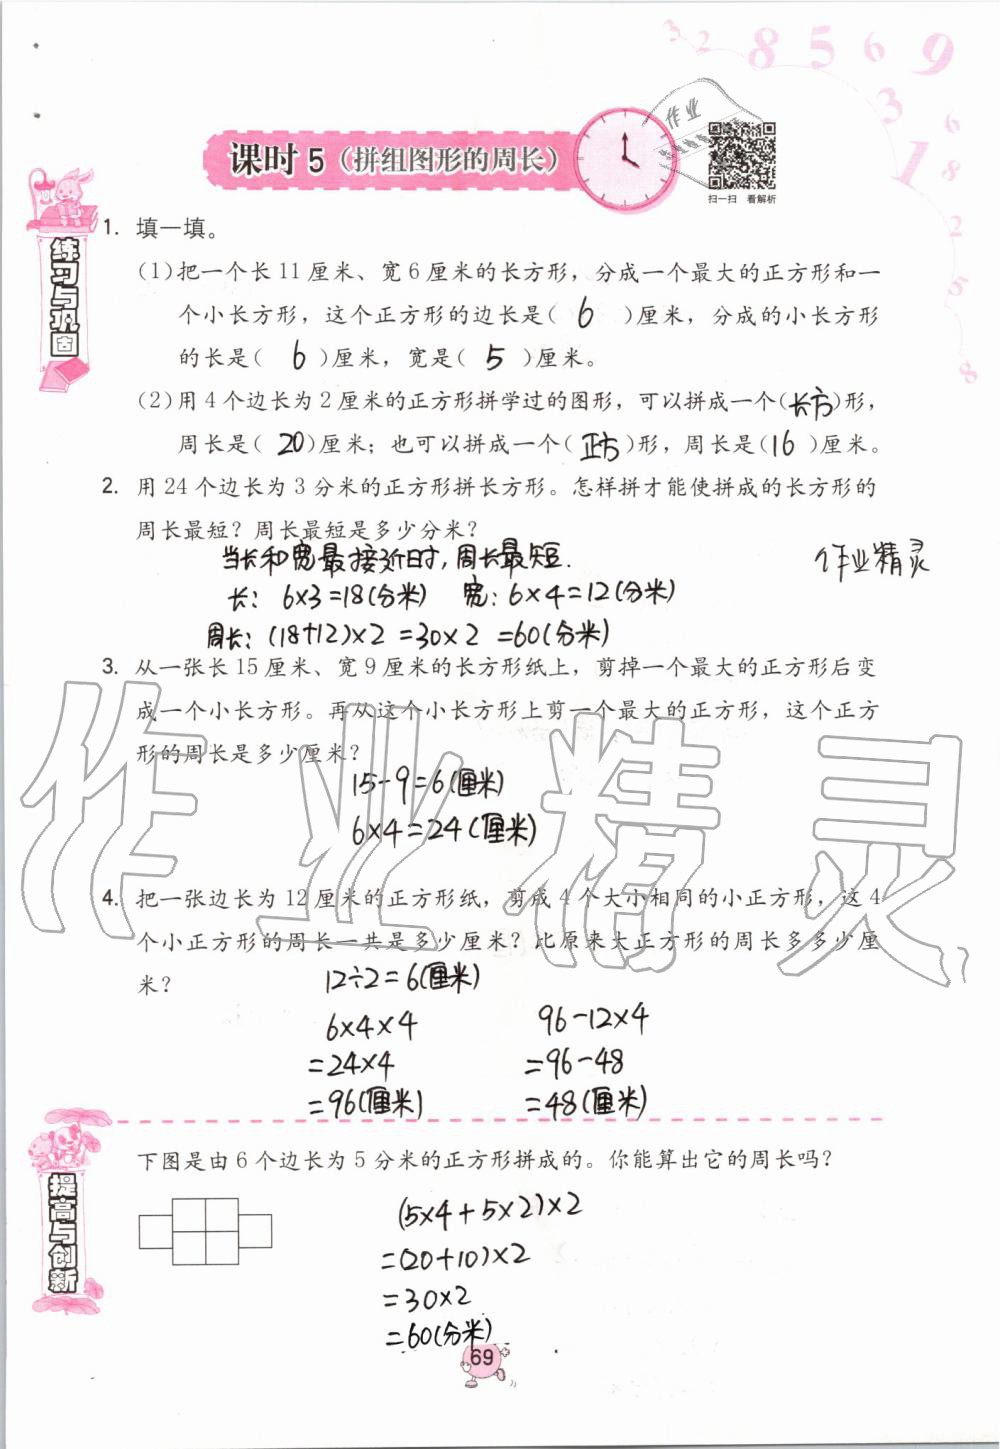 3 2 8 5 6 9
3 6
1 8
2
5
8
作业
课时 5（拼组图形的周长）
扫一扫 看解析
练习与巩固
1. 填一填。
(1)把一个长 11 厘米、宽 6 厘米的长方形，分成一个最大的正方形和一
个小长方形，这个正方形的边长是( 6 )厘米，分成的小长方形
的长是( 6 )厘米，宽是( 5 )厘米。
(2)用 4 个边长为 2 厘米的正方形拼学过的图形，可以拼成一个(长方)形，
周长是( 20 )厘米；也可以拼成一个( 正方 )形，周长是(16 )厘米。
2. 用 24 个边长为 3 分米的正方形拼长方形。怎样拼才能使拼成的长方形的
周长最短？周长最短是多少分米？
当长和宽最接近时，周长最短.
作业精灵
长：6×3=18(分米) 宽：6×4=12(分米)
周长：(18+12)×2=30×2=60(分米)
3. 从一张长 15 厘米、宽 9 厘米的长方形纸上，剪掉一个最大的正方形后变
成一个小长方形。再从这个小长方形上剪一个最大的正方形，这个正方
形的周长是多少厘米？
15-9=6(厘米)
6×4=24(厘米)
作业精灵
4. 把一张边长为 12 厘米的正方形纸，剪成 4 个大小相同的小正方形，这 4
个小正方形的周长一共是多少厘米？比原来大正方形的周长多多少厘
米？
12÷2=6(厘米)
6×4×4 96-12×4
=24×4 =96-48
=96(厘米) =48(厘米)
提高与创新
下图是由 6 个边长为 5 分米的正方形拼成的。你能算出它的周长吗？
(5×4+5×2)×2
=(20+10)×2
=30×2
=60(分米)
69